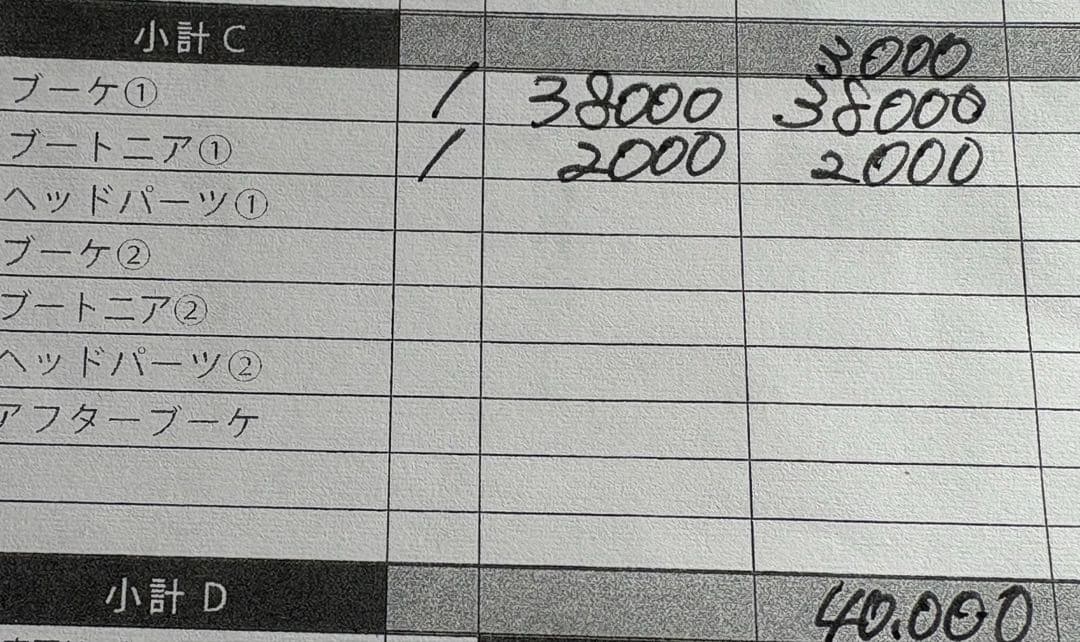 小計 C 3000
ブーケ① 1 38000 38000
ブートニア① 1 2000 2000
ヘッドパーツ①
ブーケ②
ブートニア②
ヘッドパーツ②
アフターブーケ
小計 D 40.000